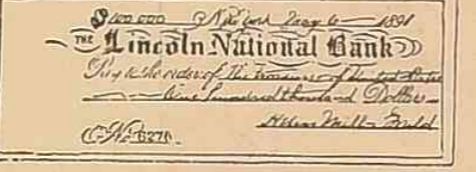 $100 000 New York May 6 — 1891
THE Lincoln National Bank
Pay to the order of The Treasurer of United States
One hundred thousand Dollars
Helen Miller Gould
No 6270.